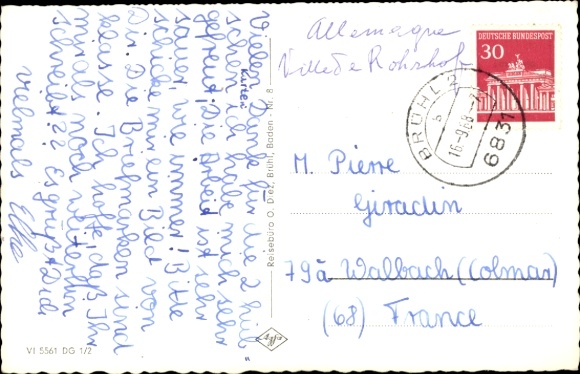 Vielen Dank für die 2 hüb
schen Karten ich habe mich sehr
gefreut! Die Arbeit ist sehr
sauer, wie immer! Bitte
schicke mir ein Bild von
Dir. Die Briefmarken sind
klasse. Ich hoffe, daß Ihr
mir als noch weiterhin
schreibt?? Es grüßt Dich
vielmals Elke
VI 5561 DG 1/2
Reisebüro O. Diez, Brühl, Baden - Nr. 8
Allemagne
Ville de Rohrhof
DEUTSCHE BUNDESPOST
30
BRÜHL 2
a
16.-9.68.-
6831
M. Pierre
Giradin
79a Walbach (Colmar)
(68) France